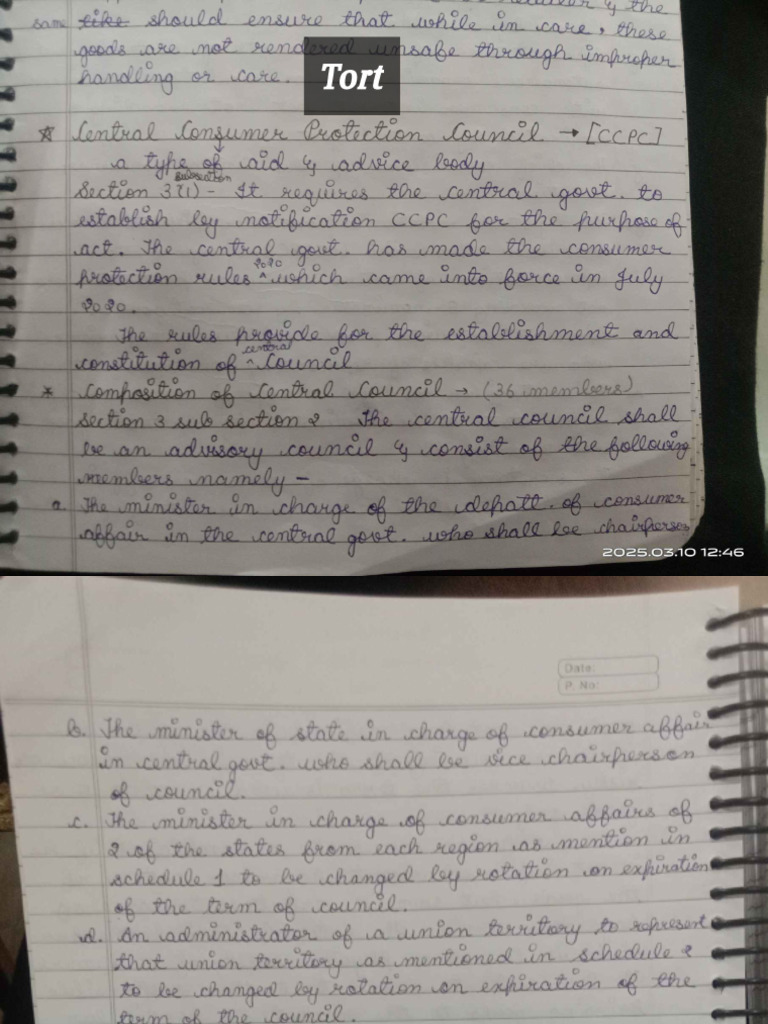 same like should ensure that while in care, these
goods are not rendered unsafe through improper
handling or care.
Tort
☆ Central Consumer Protection Council → [CCPC]
a type of aid & advice body
subsection
Section 3(1) - It requires the central govt. to
establish by notification CCPC for the purpose of
act. The central govt. has made the consumer
protection rules ^ 2020 which came into force in July
2020.
The rules provide for the establishment and
constitution of ^ central Council
* Composition of Central Council → (36 members)
Section 3 sub section 2 The central council shall
be an advisory council & consist of the following
members namely -
a. The minister in charge of the depatt. of consumer
affair in the central govt. who shall be chairperson
2025.03.10 12:46
Date:
P. No:
b. The minister of state in charge of consumer affair
in central govt. who shall be vice chairperson
of council.
c. The minister in charge of consumer affairs of
2 of the states from each region as mention in
schedule 1 to be changed by rotation on expiration
of the term of council.
d. An administrator of a union territory to represent
that union territory as mentioned in schedule 2
to be changed by rotation on expiration of the
term of the council.